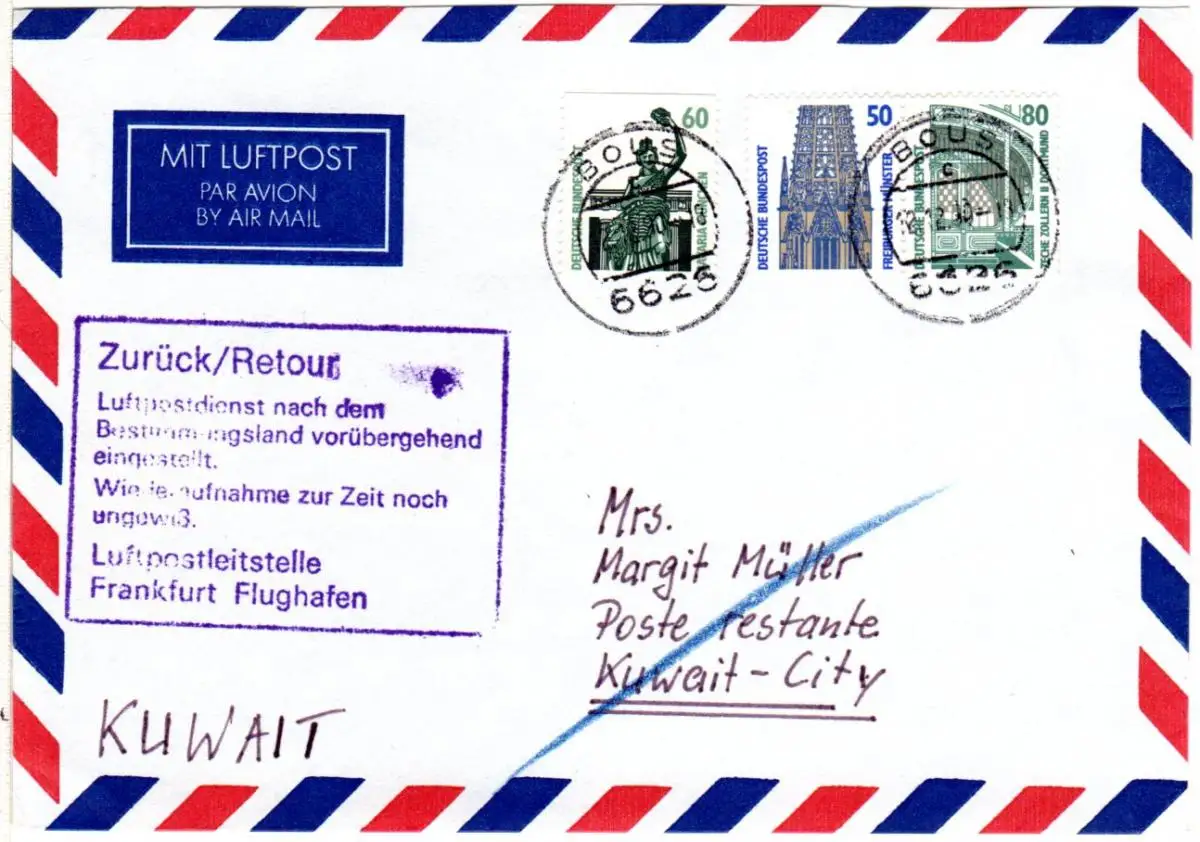 MIT LUFTPOST
PAR AVION
BY AIR MAIL
60
DEUTSCHE BUNDESPOST
50
DEUTSCHE BUNDESPOST
FREIBURGER MÜNSTER
80
DEUTSCHE BUNDESPOST
ZECHE ZOLLERN II DORTMUND
BOUS
6626
BOUS
c
6626
Zurück/Retour
Luftpostdienst nach dem
Bestimmungsland vorübergehend
eingestellt.
Wiederaufnahme zur Zeit noch
ungewiß.
Luftpostleitstelle
Frankfurt Flughafen
Mrs.
Margit Müller
Poste restante
Kuwait-City
KUWAIT